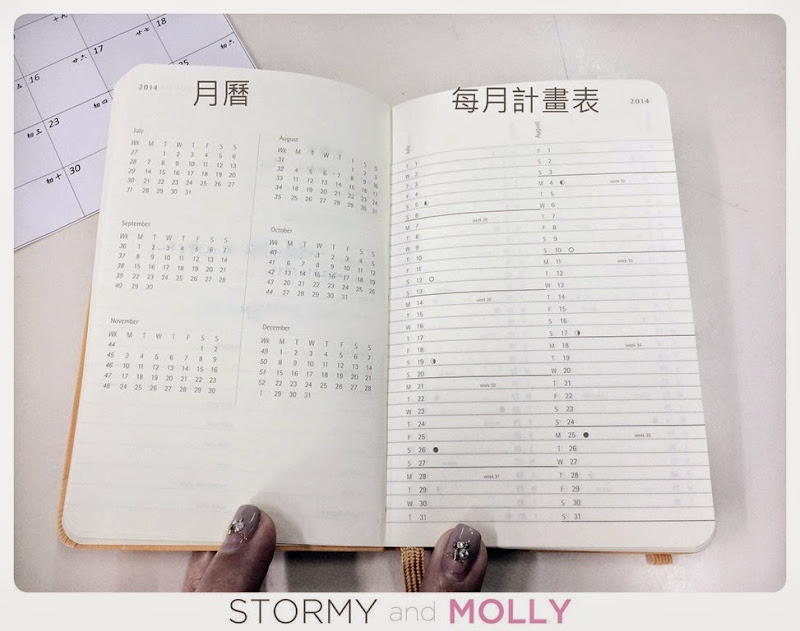 廿六
廿七
16
17
18
初四
25
初五
23
初十
30
2014
月曆
July
Wk M T W T F S S
27 1 2 3 4 5 6
28 7 8 9 10 11 12 13
29 14 15 16 17 18 19 20
30 21 22 23 24 25 26 27
31 28 29 30 31
August
Wk M T W T F S S
31 1 2 3
32 4 5 6 7 8 9 10
33 11 12 13 14 15 16 17
34 18 19 20 21 22 23 24
35 25 26 27 28 29 30 31
September
Wk M T W T F S S
36 1 2 3 4 5 6 7
37 8 9 10 11 12 13 14
38 15 16 17 18 19 20 21
39 22 23 24 25 26 27 28
40 29 30
October
Wk M T W T F S S
40 1 2 3 4 5
41 6 7 8 9 10 11 12
42 13 14 15 16 17 18 19
43 20 21 22 23 24 25 26
44 27 28 29 30 31
November
Wk M T W T F S S
44 1 2
45 3 4 5 6 7 8 9
46 10 11 12 13 14 15 16
47 17 18 19 20 21 22 23
48 24 25 26 27 28 29 30
December
Wk M T W T F S S
49 1 2 3 4 5 6 7
50 8 9 10 11 12 13 14
51 15 16 17 18 19 20 21
52 22 23 24 25 26 27 28
1 29 30 31
每月計畫表
2014
July
T 1
W 2
T 3
F 4
S 5
S 6
M 7 week 28
T 8
W 9
T 10
F 11
S 12
S 13
M 14 week 29
T 15
W 16
T 17
F 18
S 19
S 20
M 21 week 30
T 22
W 23
T 24
F 25
S 26
S 27
M 28 week 31
T 29
W 30
T 31
August
F 1
S 2
S 3
M 4 week 32
T 5
W 6
T 7
F 8
S 9
S 10
M 11 week 33
T 12
W 13
T 14
F 15
S 16
S 17
M 18 week 34
T 19
W 20
T 21
F 22
S 23
S 24
M 25 week 35
T 26
W 27
T 28
F 29
S 30
S 31
STORMY and MOLLY